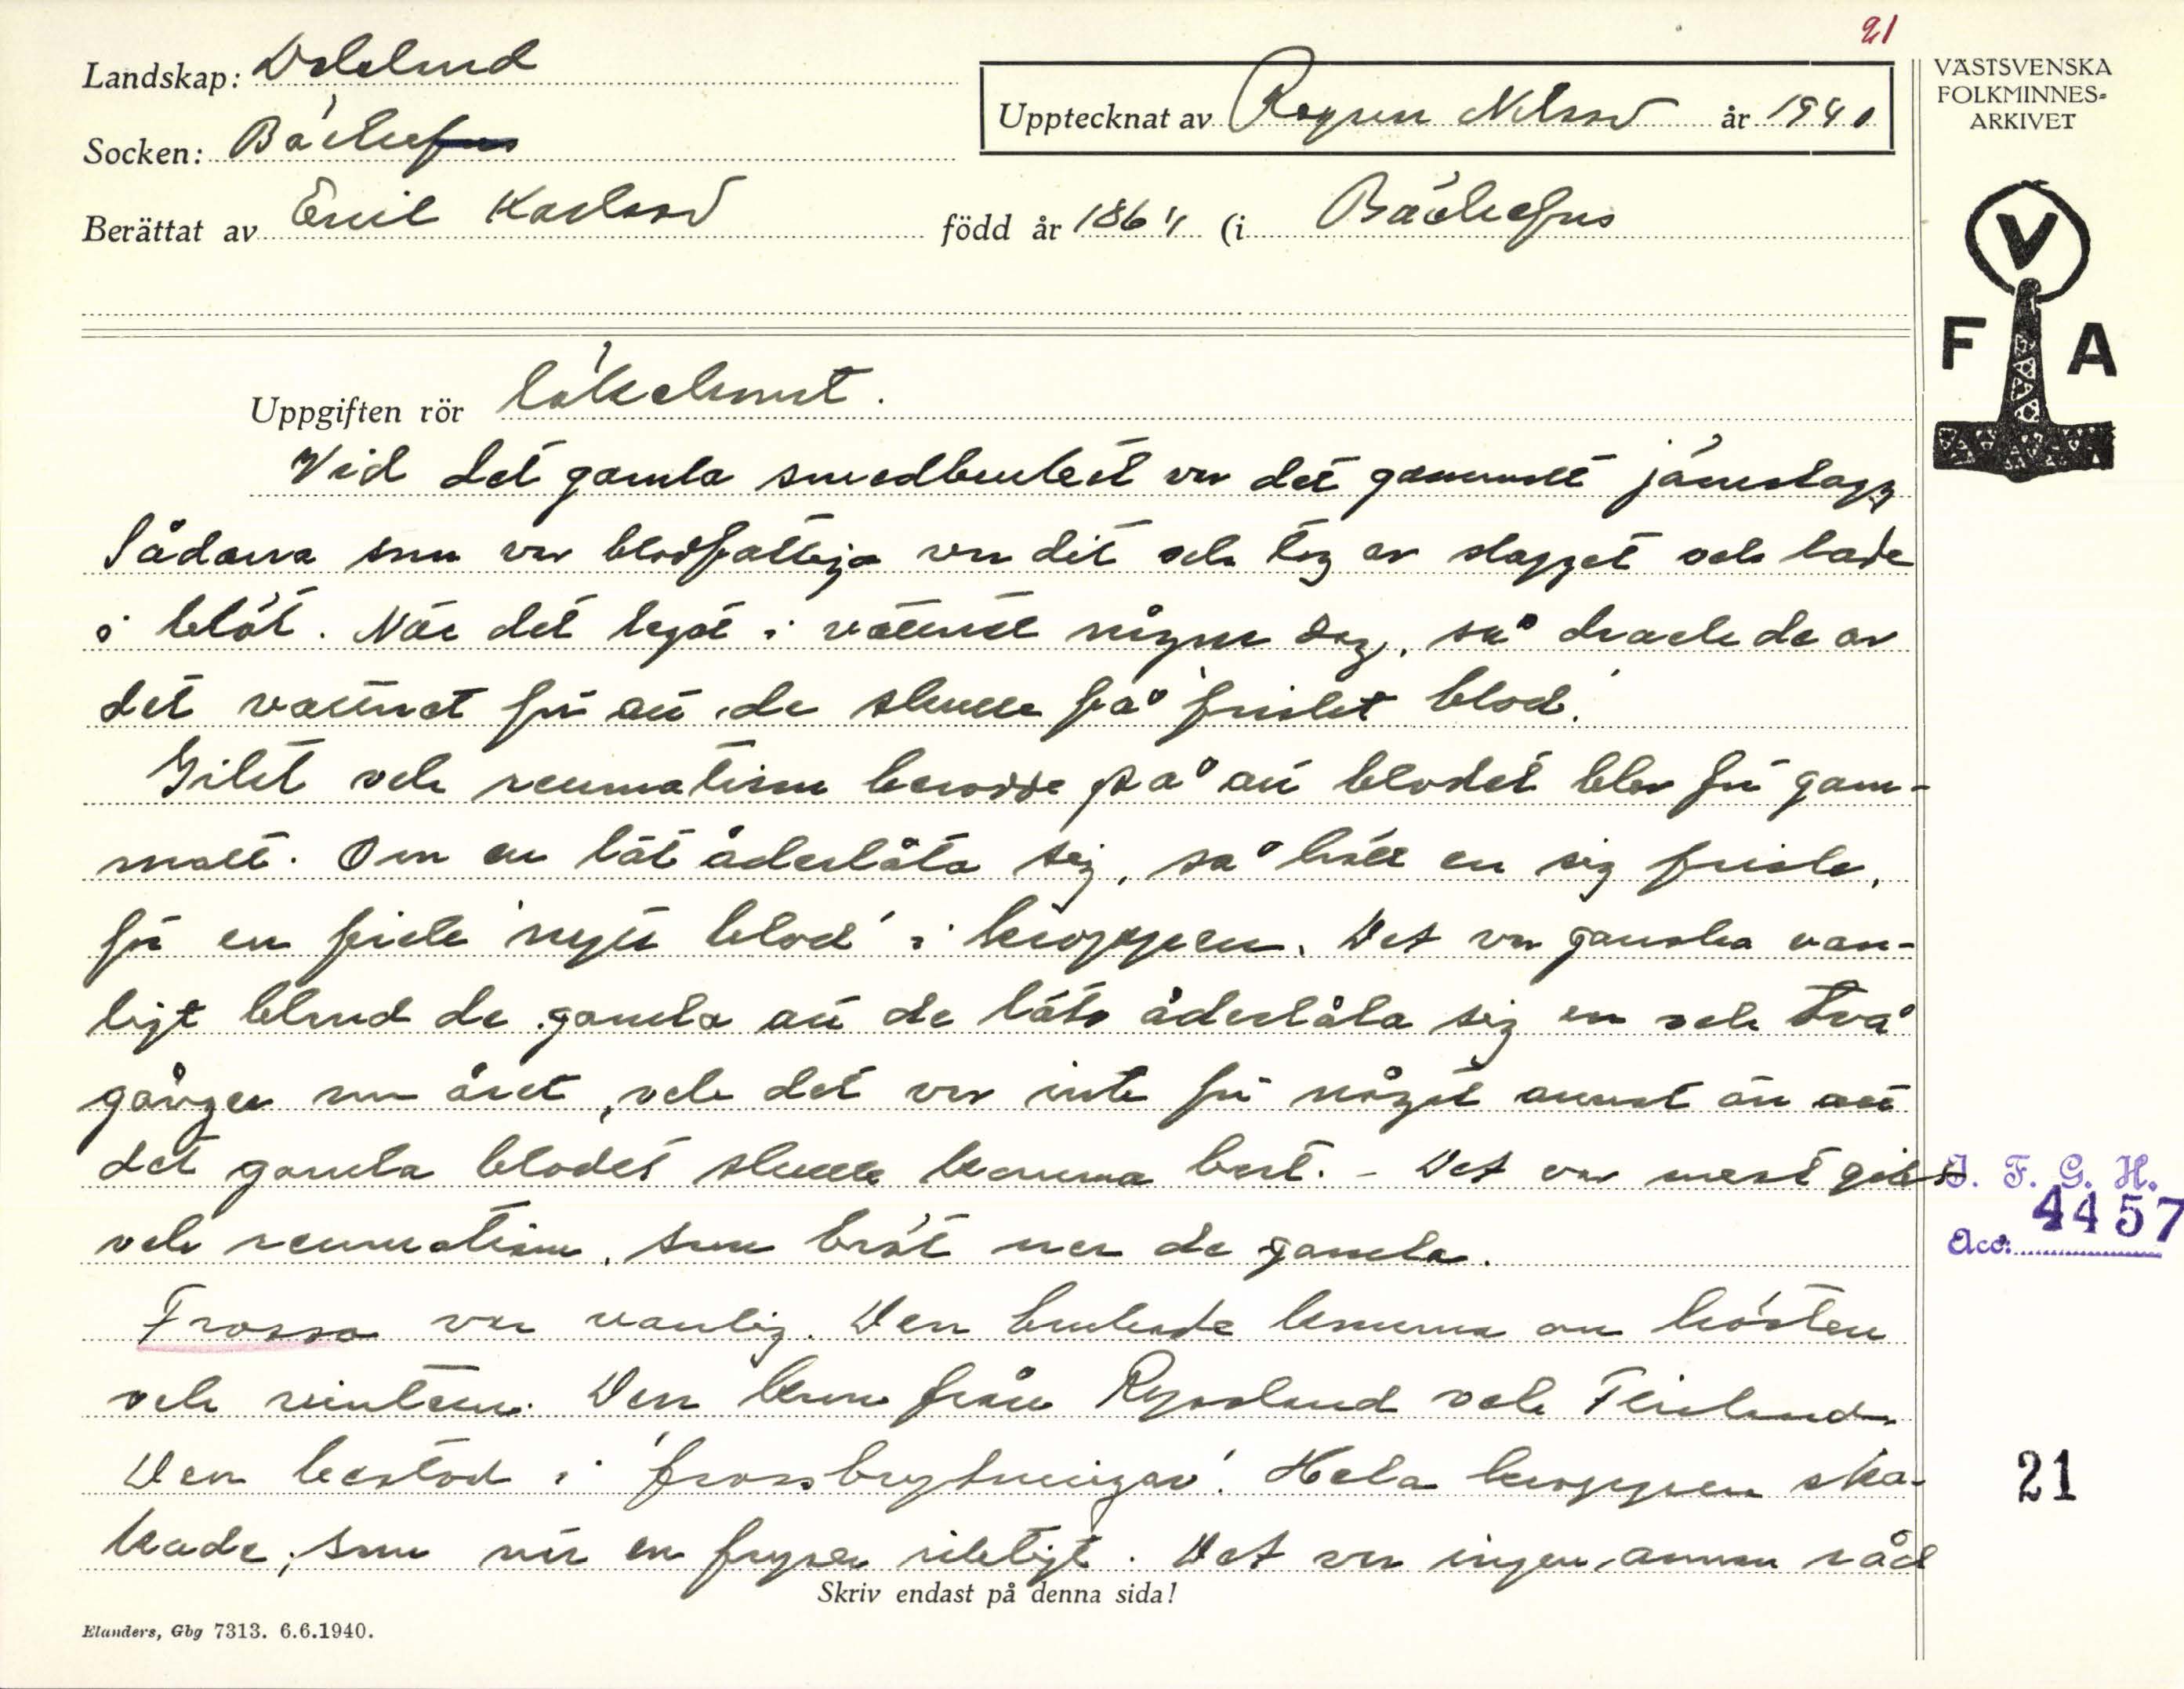 21
Landskap: Dalsland
VÄSTSVENSKA
FOLKMINNES-
ARKIVET
Upptecknat av Ragnar Nilsson år 1940
Socken: Bäckefors
Berättat av Emil Karlsson född år 1864 (i Bäckefors
V
F A
Uppgiften rör läkekonst.
Vid det gamla smedbruket var det gammalt järnslagg
Sådana som var blodfattiga von dit och tog av slagget och lade
i blöt. När det legat i vattnet några dag, så drack de av
det vattnet för att de skulle få 'friskt blod'.
Gikt och reumatism berodde på att blodet blev för gam-
malt. Om en lät åderlåta sig, så höll en sig frisk,
för en fick 'nytt blod' i kroppen. Det var ganska van-
ligt bland de gamla att de läto åderlåta sig en och två
gånger om året, och det var inte för något annat än att
det gamla blodet skulle komma bort. - Det var mest gikt
och reumatism, som bröt ner de gamla.
J. F. G. H.
Acc. 4457
Frossa var vanlig. Den brukade komma om hösten
och vintern. Den kom från Ryssland och Finland.
Den bestod i 'frossbrytningar'. Hela kroppen ska-
kade, som när en fryser riktigt. Det var ingen annan råd
21
Skriv endast på denna sida!
Elanders, Gbg 7313. 6.6.1940.